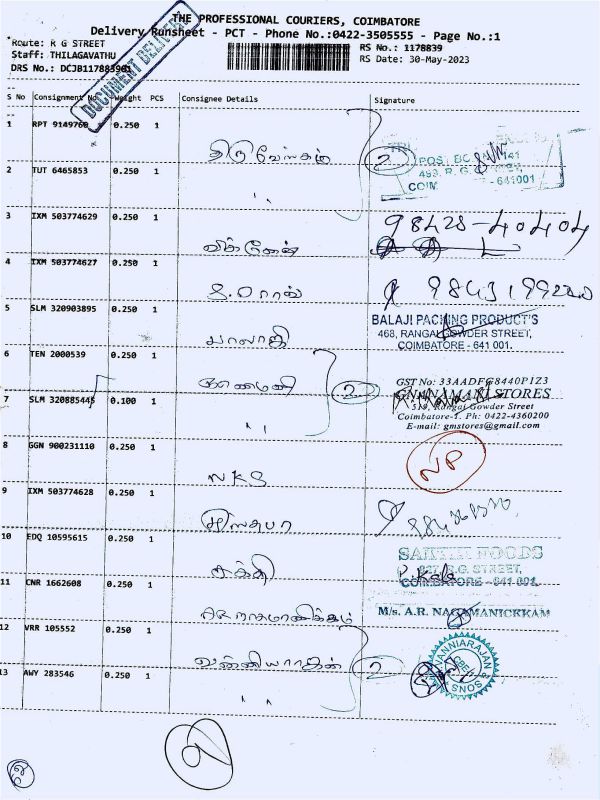 THE PROFESSIONAL COURIERS, COIMBATORE
Delivery Runsheet - PCT - Phone No.:0422-3505555 - Page No.:1
Route: R G STREET
RS No. : 1178839
Staff: THILAGAVATHU
RS Date: 30-May-2023
DRS No.: DCJB117883901
DOCUMENT DELIVERY
S No Consignment No. Weight PCS Consignee Details Signature
1 RPT 9149760 0.250 1
2 TUT 6465853 0.250 1 2
POST BO 141
R. G.
COIM - 641001
3 IXM 503774629 0.250 1 98428-40404
4 IXM 503774627 0.250 1
5 SLM 320903895 0.250 1 பாலாஜி
BALAJI PACKING PRODUCT'S
468, RANGAI GOWDER STREET,
COIMBATORE - 641 001.
6 TEN 2000539 0.250 1 ஞானமணி
7 SLM 320885445 0.100 1 2
GST No: 33AADFG8440P1Z3
GNANAMANI STORES
519, Rangai Gowder Street
Coimbatore-1. Ph: 0422-4360200
E-mail: gmstores@gmail.com
8 GGN 900231110 0.250 1 NKS NP
9 IXM 503774628 0.250 1
10 EDQ 10595615 0.250 1 சக்தி
R.G. STREET,
COIMBATORE - 641 001.
P. Kala
11 CNR 1662608 0.250 1 AR நாகமாணிக்கம்
M/s. A.R. NAGAMANICKKAM
12 VRR 105552 0.250 1 வன்னியராஜன்
13 AWY 283546 0.250 1 2
VANNIARAJAN
SONS
9